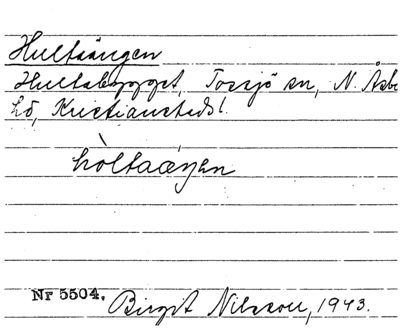 Hultaängen
Hultabygget, Tossjö sn, N. Åsbo
hd, Kristianstads l.
hòltaáŋen
Nr 5504. Birgit Nilsson, 1943.